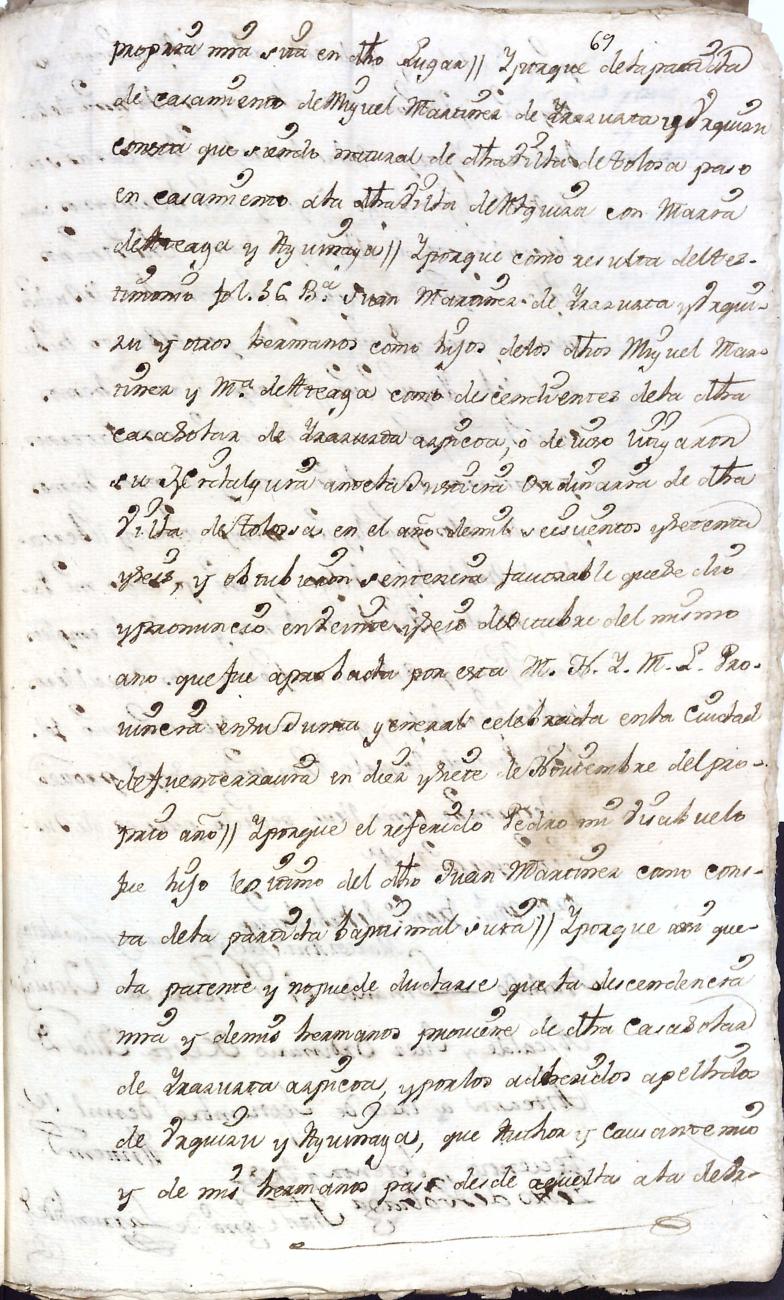 69
propria mia sita en dho Lugar // Yporque dela partida
de casamiento de Miguel Martinez de Yrazusta y Vrquizu
consta que siendo natural de dha Villa de tolosa paso
en casamiento ala dha Villa de Alquiza con Maria
de Arteaga y Ayumaya // Yporque como resulta deltes-
timonio fol. 36 Ba. Juan Martinez de Yrazusta y Vrqui-
zu y otros hermanos como hijos delos dhos Miguel Mar-
tinez y Ma. de Arteaga como descendientes dela dha
casa Solar de Yrazusta aspicoa, ó de uso litigaron
su Hidalguia ante la Justicia Ordinaria de dha
Villa de Tolossa en el año demil seiscientos ysetenta
yseis, y obtubieron sentencia fauorable quese dio
ypronuncio en Veinte yseis de Octubre del mismo
ano que fue aprobada por esta M. N. Y. M. L. Pro-
uincia en su Junta general celebrada en la Ciudad
de fuenterrauia en diez ysiete de Nouiembre del pro-
prio año // Yporque el referido Pedro mi Visabuelo
fue hijo lexitimo del dho Juan Martinez como cons-
ta dela partida baptismal suia // Yporque asi que-
da patente y nopuede dudarse que la descendencia
mia y demis hermanos prouiene de dha Casa Solar
de Yrazusta aspicoa, yporlos adheridos apellidos
de Vrquizu y Ayumaya, que Author y Causante mio
y de mis hermanos paso desde aquella ala de Vr-